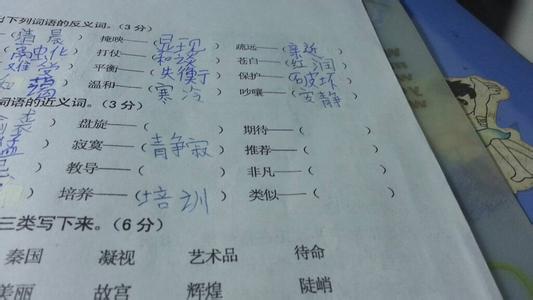 下列词语的反义词。(3分)
—(清晨 掩映——(显现) 疏远——(亲近)
打仗——(和谈) 苍白——(红润)
难 平衡——(失衡) 保护——(破坏)
温和——(寒冷) 吵嚷——(安静)
词语的近义词。(3分)
盘旋——( ) 期待——( )
寂寞——(静寂) 推荐——( )
教导——( ) 非凡——( )
培养——(培训) 类似——( )
三类写下来。(6分)
秦国 凝视 艺术品 待命
美丽 故宫 辉煌 陡峭